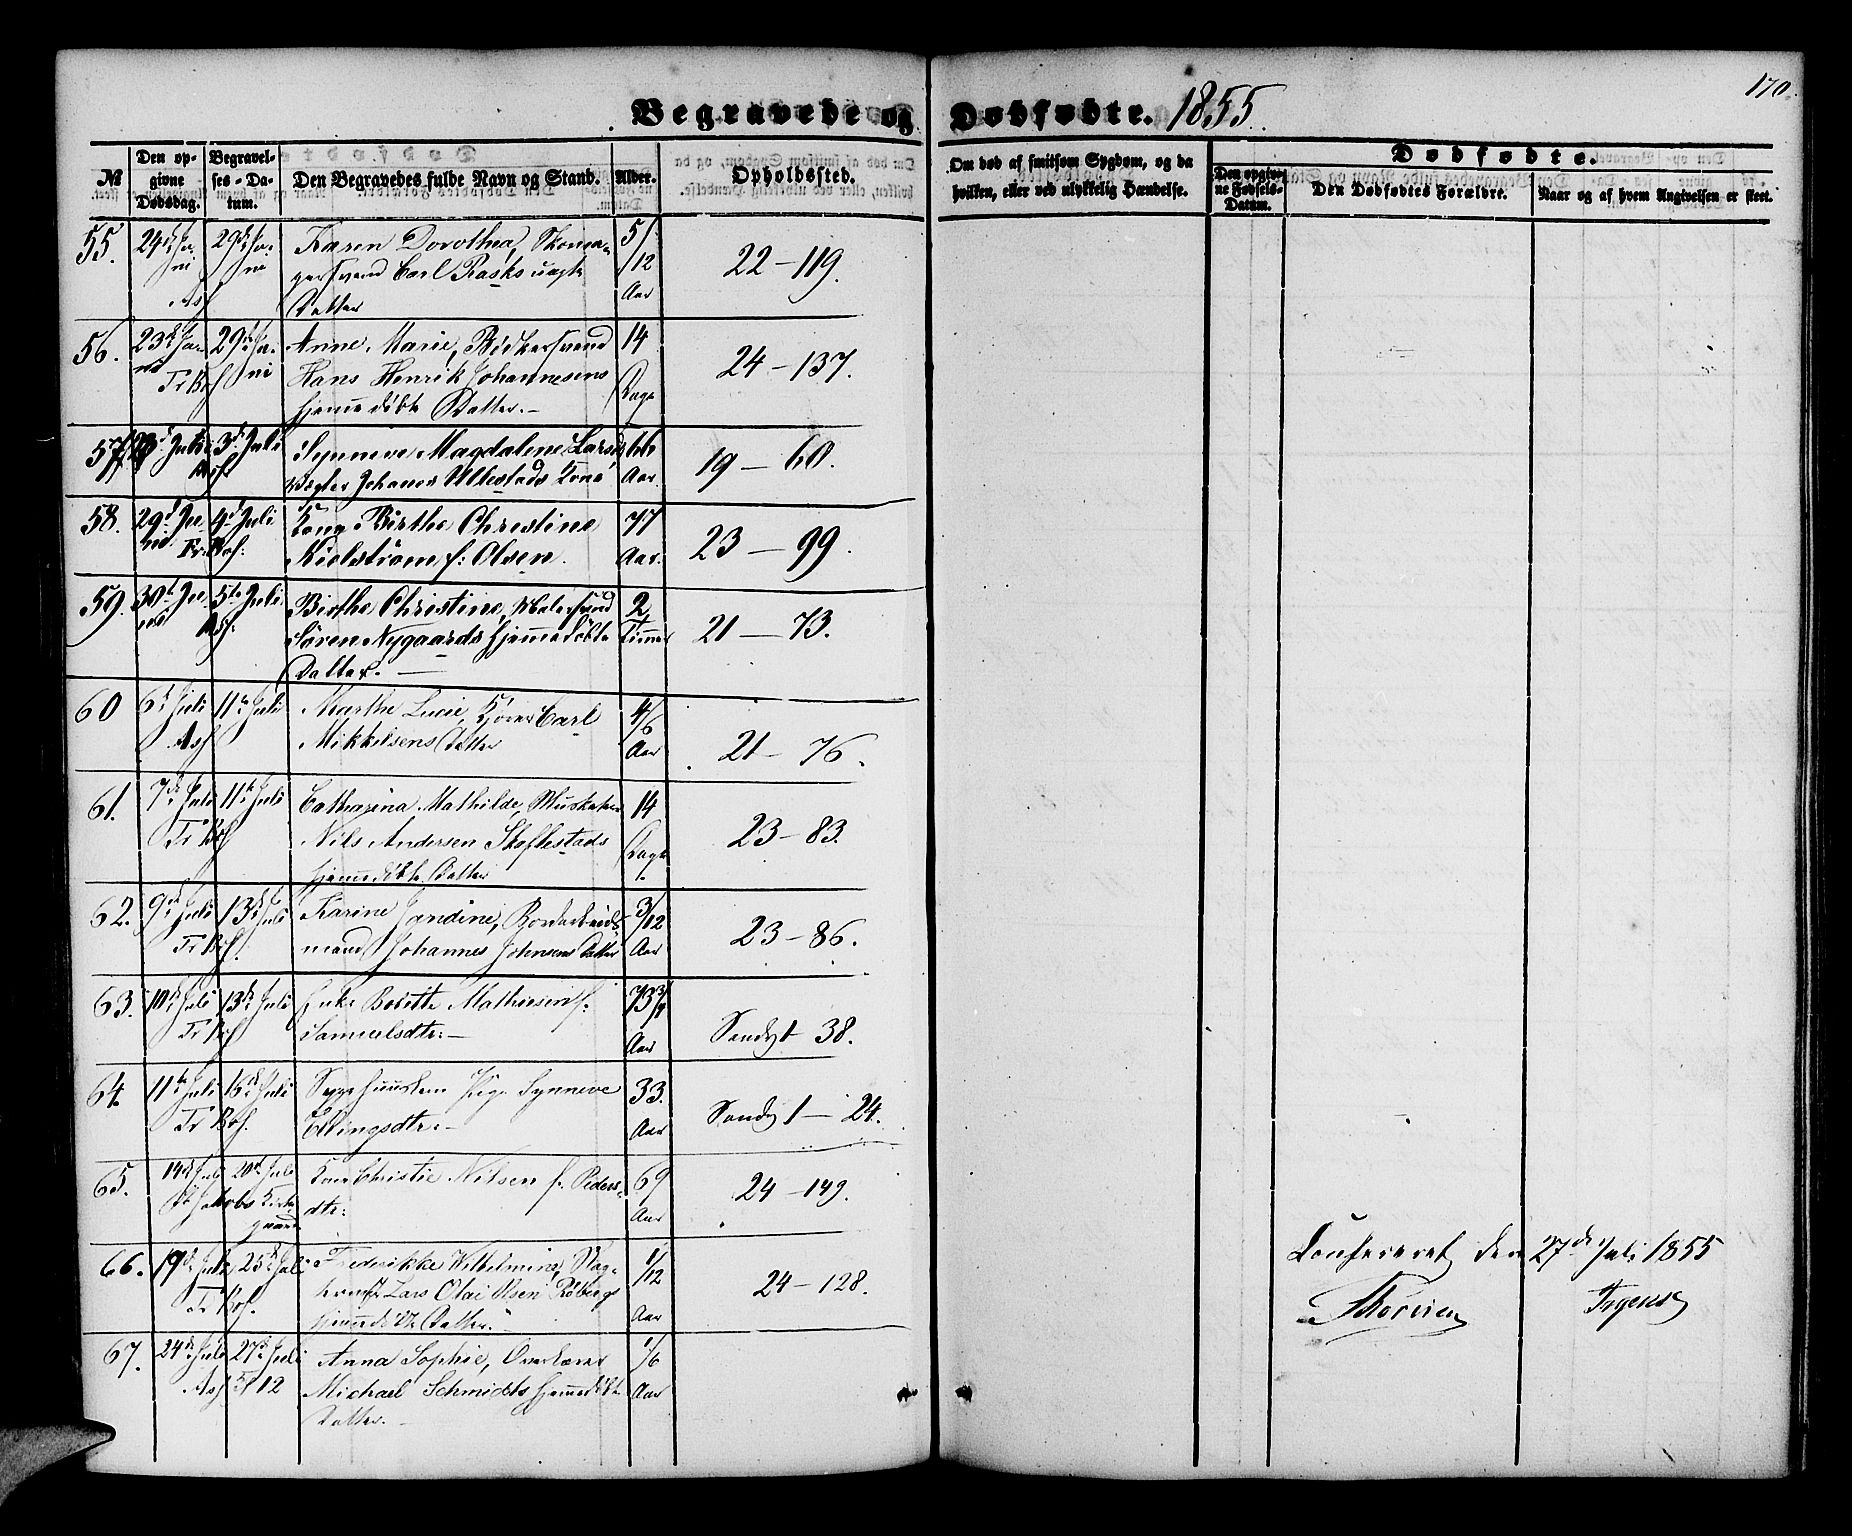 170.
Begravede og Dødfødte. 1855.
№
Den opgivne Dødsdag.
Begravelses-Datum.
Den Begravedes fulde Navn og Stand.
Alder.
Opholdssted.
Om død af smitsom Sygdom, og da hvilken, eller ved ulykkelig Hændelse.
Dødfødte.
Den opgivne Fødsels-Datum.
Den Dødfødtes Forældre.
Naar og af hvem Angivelsen er skeet.
55. 24de Ju- 29de Ju- Karen Dorothea, Skoma- 5/12
ni ni gersvend Carl Rasks uægte Aar 22 - 119.
Asf Datter
56. 23de Ju- 29de Ju- Anne Marie, Bødkersvend 14
ni ni Hans Henrik Johannesens 24 - 137.
Fr Kof hjemmedøbte Datter. - Dage
57 3de Juli Synneve Magdalene Larsd 66
Asf Vægter Johannes Ullestads Kone Aar. 19 - 60.
58. 29de Ju- 4de Juli Kone Birthe Christine 77
ni Fr. Kof: Kielstrøm f: Olsen. Aar. 23 - 99.
59. 30te Ju- 5te Juli Birthe Christine, Malersvend 2
ni Asf. Søren Nygaards hjemmedøbte Timer 21 - 73.
Datter. -
60 6te Juli 11te Juli Marthe Lucie, Kjører Carl 4/6
Asf Mikkelsens Datter Aar 21 - 76.
61. 7de Juli 11te Juli Catharina Mathilde, Muskateer 14
Fr Kof Nils Andersen Skeflestads Dage 23 - 83.
hjemmedøbte Datter
62. 9de Juli 13de Juli Karine Jandine, Bordarbeids- 3/12
Fr Kof. mand Johannes Johnsens Datter Aar 23 - 86.
63. 10de Juli 13de Juli Enke Bolette Mathiesen f: 73
Fr Kof Samuelsdtr: - Aar Sandvgt 38.
64. 11te Juli 16de Juli Pige Synneve 33.
Fr Kof. Ellingsdtr: - Aar Sandvg 1 - 24.
65. 14de Juli 20de Juli Kone Christie Nilsen f. Peders- 69
St Jakobs Kirke- dtr: Aar 24 - 149.
gaard
66. 19de Juli 25de Juli Frederikke Wilhelmine, 1/12
Fr Kof. Lars Olai Olsen Rebergs 24 - 128.
hjemmedøbte Datter. Aar
67. 24de Juli 27de Juli Anna Sophie, 1/6
Asf 5/12 Michael Schmidts hjemmedøbte Aar
Datter. -
Confereret den 27de Juli 1855
Thorsen Irgens